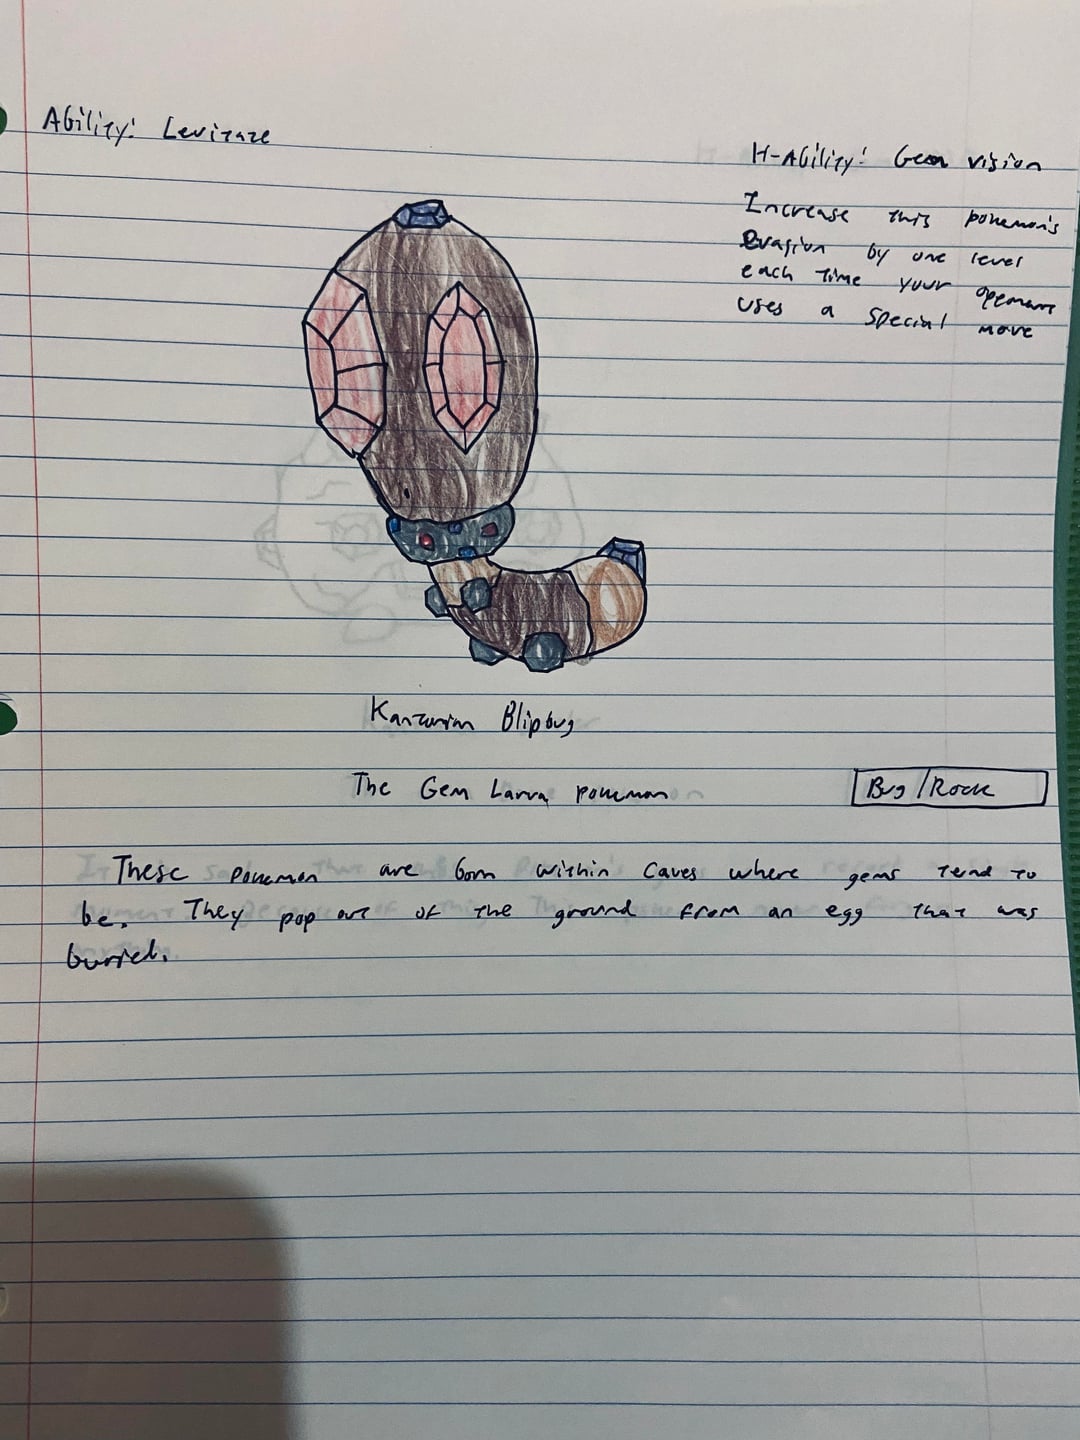 Ability: Levitate
H-Ability: Gem vision
Increase this pokemon's
Evasion by one level
each time your opponent
uses a special move
Blipbug
The Gem Larva pokemon
Bug/Rock
These pokemon are born within caves where gems tend to
be. They pop out of the ground from an egg that was
burried.